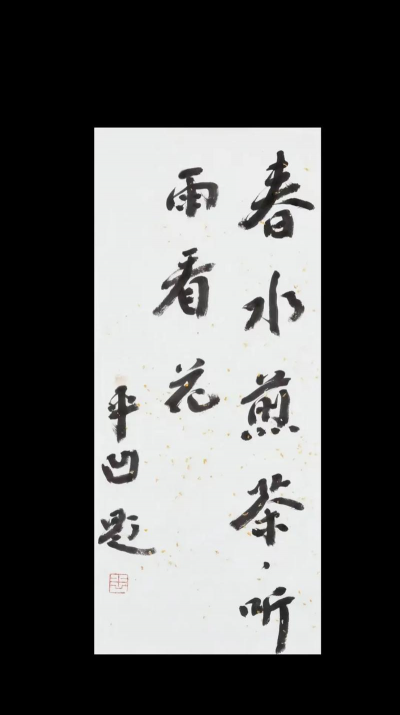 春水煎茶·听
雨看花
平凹题